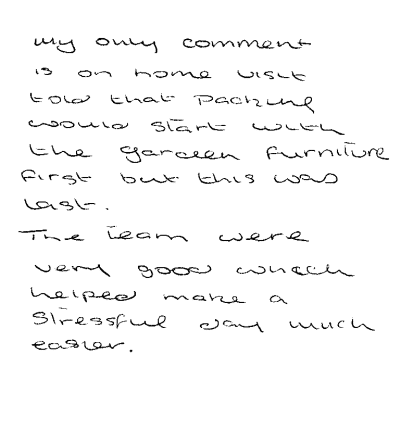 my only comment
is on home visit
told that packing
would start with
the garden furniture
first but this was
last.
The team were
very good which
helped make a
stressful day much
easier.